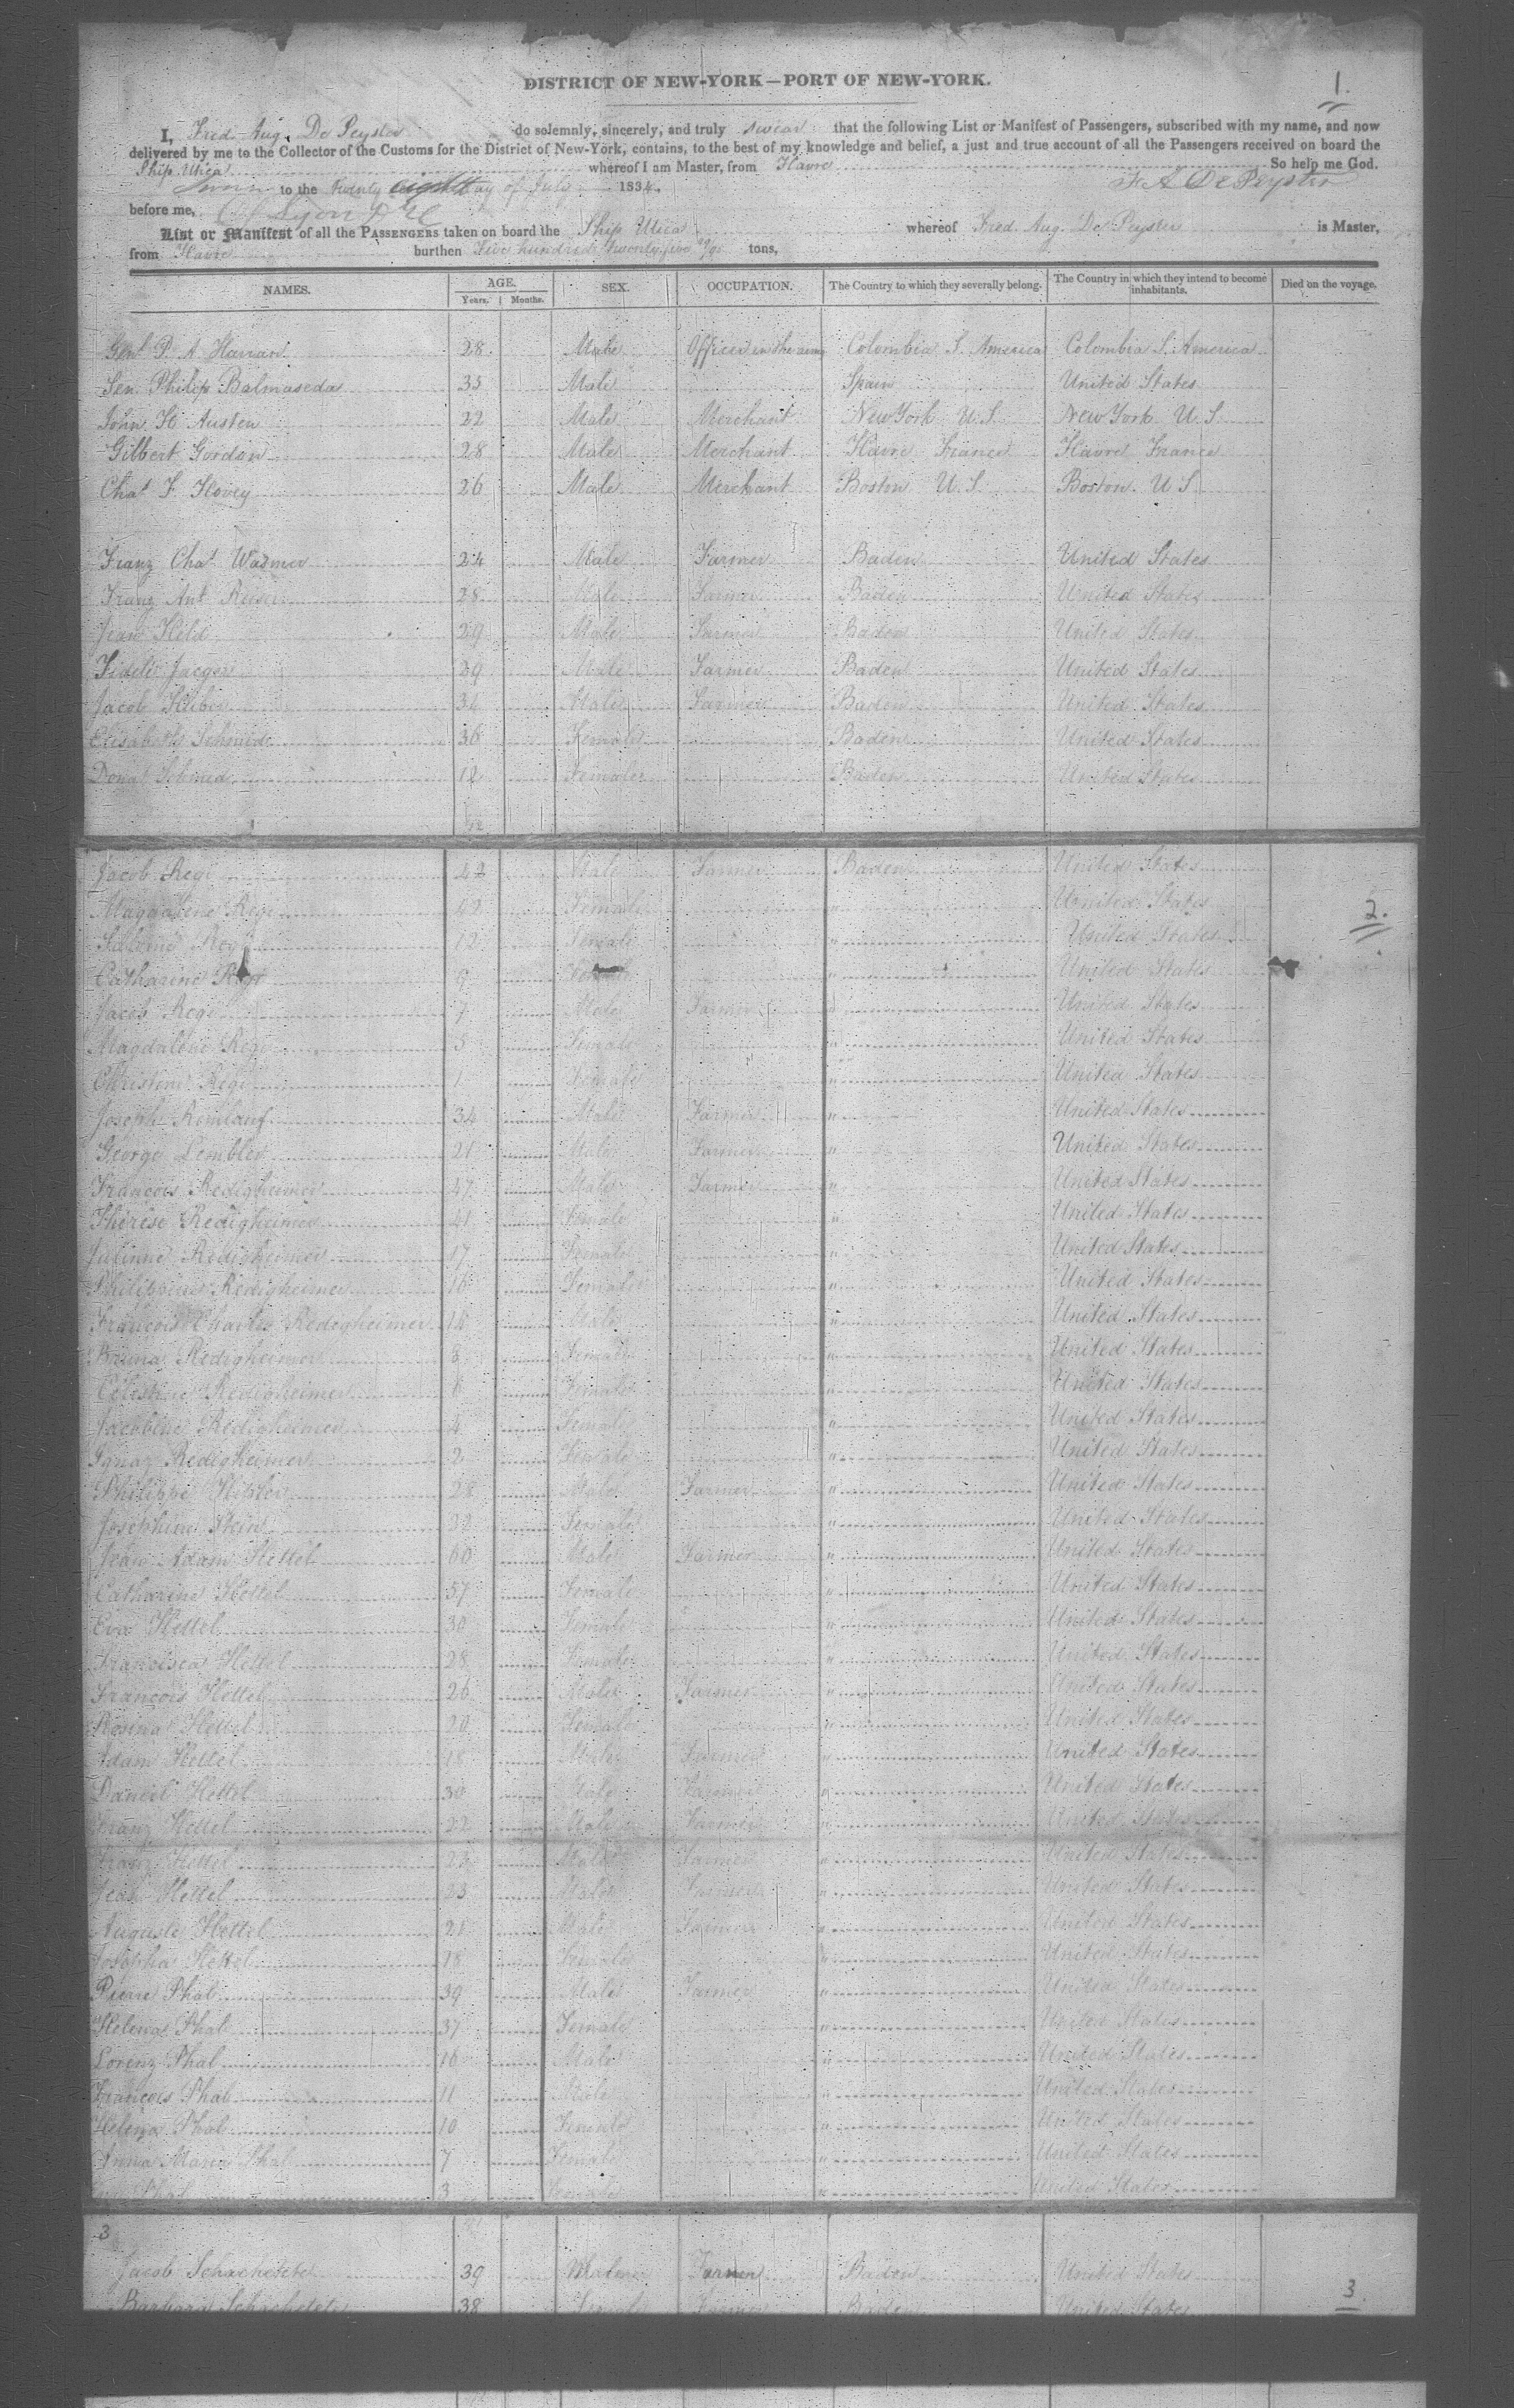 1.
DISTRICT OF NEW-YORK—PORT OF NEW-YORK.
I, Fred Aug. De Peyster do solemnly, sincerely, and truly swear that the following List or Manifest of Passengers, subscribed with my name, and now
delivered by me to the Collector of the Customs for the District of New-York, contains, to the best of my knowledge and belief, a just and true account of all the Passengers received on board the
Ship Utica whereof I am Master, from Havre So help me God.
Sworn to the Twenty eighth day of July 1834. F A De Peyster
before me,
List or Manifest of all the PASSENGERS taken on board the Ship Utica whereof Fred. Aug. De Peyster is Master,
from Havre burthen Five hundred Twenty five tons,
NAMES. AGE. SEX. OCCUPATION. The Country to which they severally belong. The Country in which they intend to become inhabitants. Died on the voyage.
Years. Months.
Genl P. A 28 Male Officer in the army Colombia S. America Colombia S. America
Sen. Philip Balmaseda 35 Male Spain United States
John H Austen 22 Male Merchant New York U.S. New York U.S.
Gilbert Gordon 28 Male Merchant Havre France Havre France
Chas F. Hovey 26 Male Merchant Boston U.S. Boston U.S.
Franz Chas Wasmer 24 Male Farmer Baden United States
Franz Ant Reiser 28 Male Farmer Baden United States
Jean Held 29 Male Farmer Baden United States
Fidele Jaeger 29 Male Farmer Baden United States
Jacob Huber 34 Male Farmer Baden United States
Elisabeth Schmide 36 Female Baden United States
Donat Schmid 12 Female Baden United States
Jacob Regi 42 Male Farmer Baden United States
2.
Magdalene Regi 42 Female " United States
Salome Regi 12 Female " United States
Catharine Regi 9 Female " United States
Jacob Regi 7 Male Farmer " United States
Magdalene Regi 5 Female " United States
Christine Regi 1 Female " United States
Joseph Romlauf 34 Male Farmer " United States
George Lembler 21 Male Farmer " United States
Francois Redigheimer 47 Male Farmer " United States
Therese Redigheimer 41 Female " United States
Julienne Redigheimer 17 Female " United States
Philippine Redigheimer 16 Female " United States
Francois Charles Redigheimer 14 Male " United States
Bruna Redigheimer 8 Female " United States
Celestine Redigheimer 6 Female " United States
Jacobine Redigheimer 4 Female " United States
Ignaz Redigheimer 2 Female " United States
Philippe Hipler 28 Male Farmer " United States
Josephine Stein 22 Female " United States
Jean Adam Hettel 60 Male Farmer " United States
Catharine Hettel 57 Female " United States
Eva Hettel 30 Female " United States
Francisca Hettel 28 Female " United States
Francois Hettel 26 Male Farmer " United States
Rosina Hettel 20 Female " United States
Adam Hettel 18 Male Farmer " United States
Daniel Hettel 30 Male Farmer " United States
Franz Hettel 22 Male Farmer " United States
Franz Hettel 23 Male Farmer " United States
Jean Hettel 23 Male Farmer " United States
Auguste Hettel 21 Male Farmer " United States
Josepha Hettel 18 Female " United States
Pierre Phal 39 Male Farmer " United States
Helena Phal 37 Female " United States
Lorenz Phal 16 Male " United States
Francois Phal 11 Male " United States
Helena Phal 10 Female " United States
Anna Maria Phal 7 Female " United States
Phal 3 Female " United States
3
Jacob Schachetete 39 Male Farmer Baden United States
Barbara Schachetete 38 Female Farmer Baden United States
3